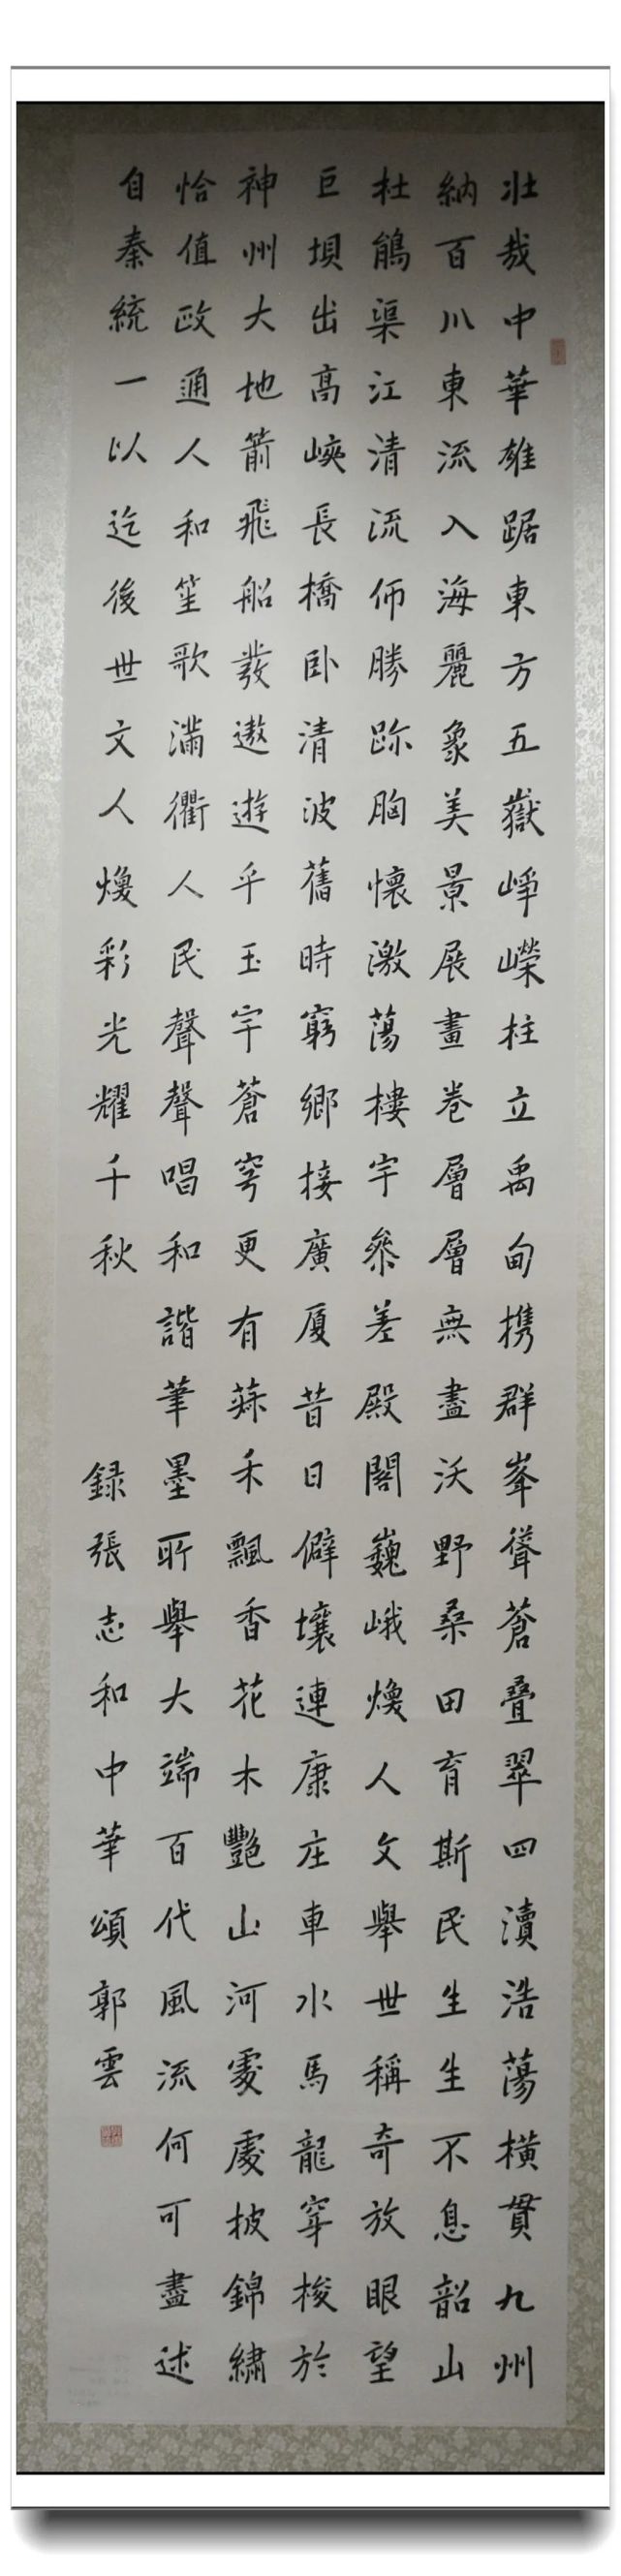 壯哉中華雄踞東方五嶽崢嶸柱立禹甸携群峯聳蒼疊翠四瀆浩蕩橫貫九州
納百川東流入海麗象美景展畫卷層層無盡沃野桑田育斯民生生不息韶山
杜鵑渠江清流佈勝跡胸懷激蕩樓宇參差殿閣巍峨煥人文舉世稱奇放眼望
巨壩出高峽長橋卧清波舊時窮鄉接廣厦昔日僻壤連康庄車水馬龍穿梭於
神州大地箭飛船發遨遊乎玉宇蒼穹更有蔬禾飄香花木艷山河處處披錦繡
恰值政通人和笙歌滿衢人民聲聲唱和諧筆墨所舉大端百代風流何可盡述
自秦統一以迄後世文人煥彩光耀千秋
録張志和中華頌郭雲